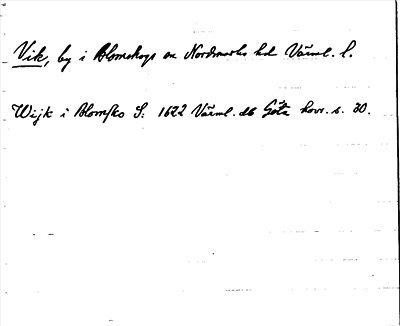 Vik, by i Blomskogs sn Nordmarks hd Värml. l.
Wijk i Blomsko S: 1622 Värml. db Göta hovr. s. 30.